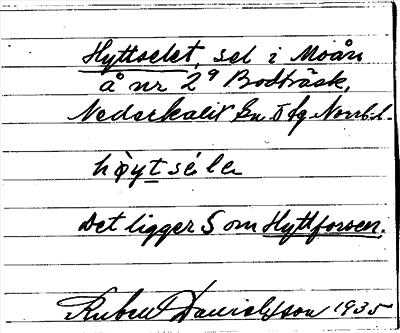 Hyttselet, sel i Moån
å nr 29 Bodträsk,
Nederkalix sn Norrb.l.
hòytséle
Det ligger S om Hyttforsen.
Ruben Danielsson 1935